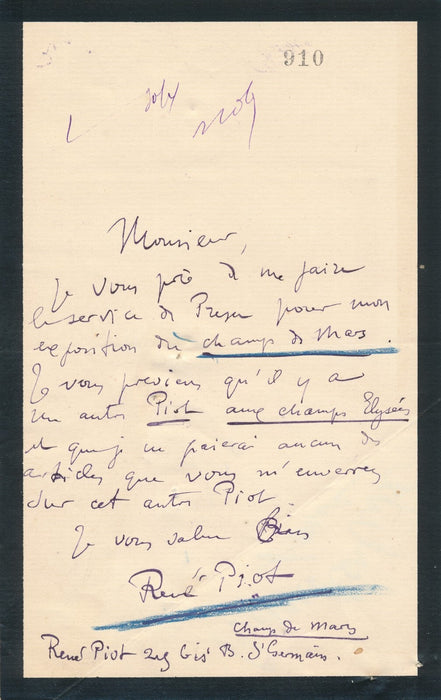 910
Monsieur,
Je vous prie de me faire
le service de Presse pour mon
exposition du champs de Mars.
Je vous previens qu'il y a
un autre Piot aux champs Elysées
et que je ne paierai aucun des
articles que vous m'enverrez
sur cet autre Piot
Je vous salue Bien
René Piot
Champs de Mars
René Piot 229 bis B. St Germain.